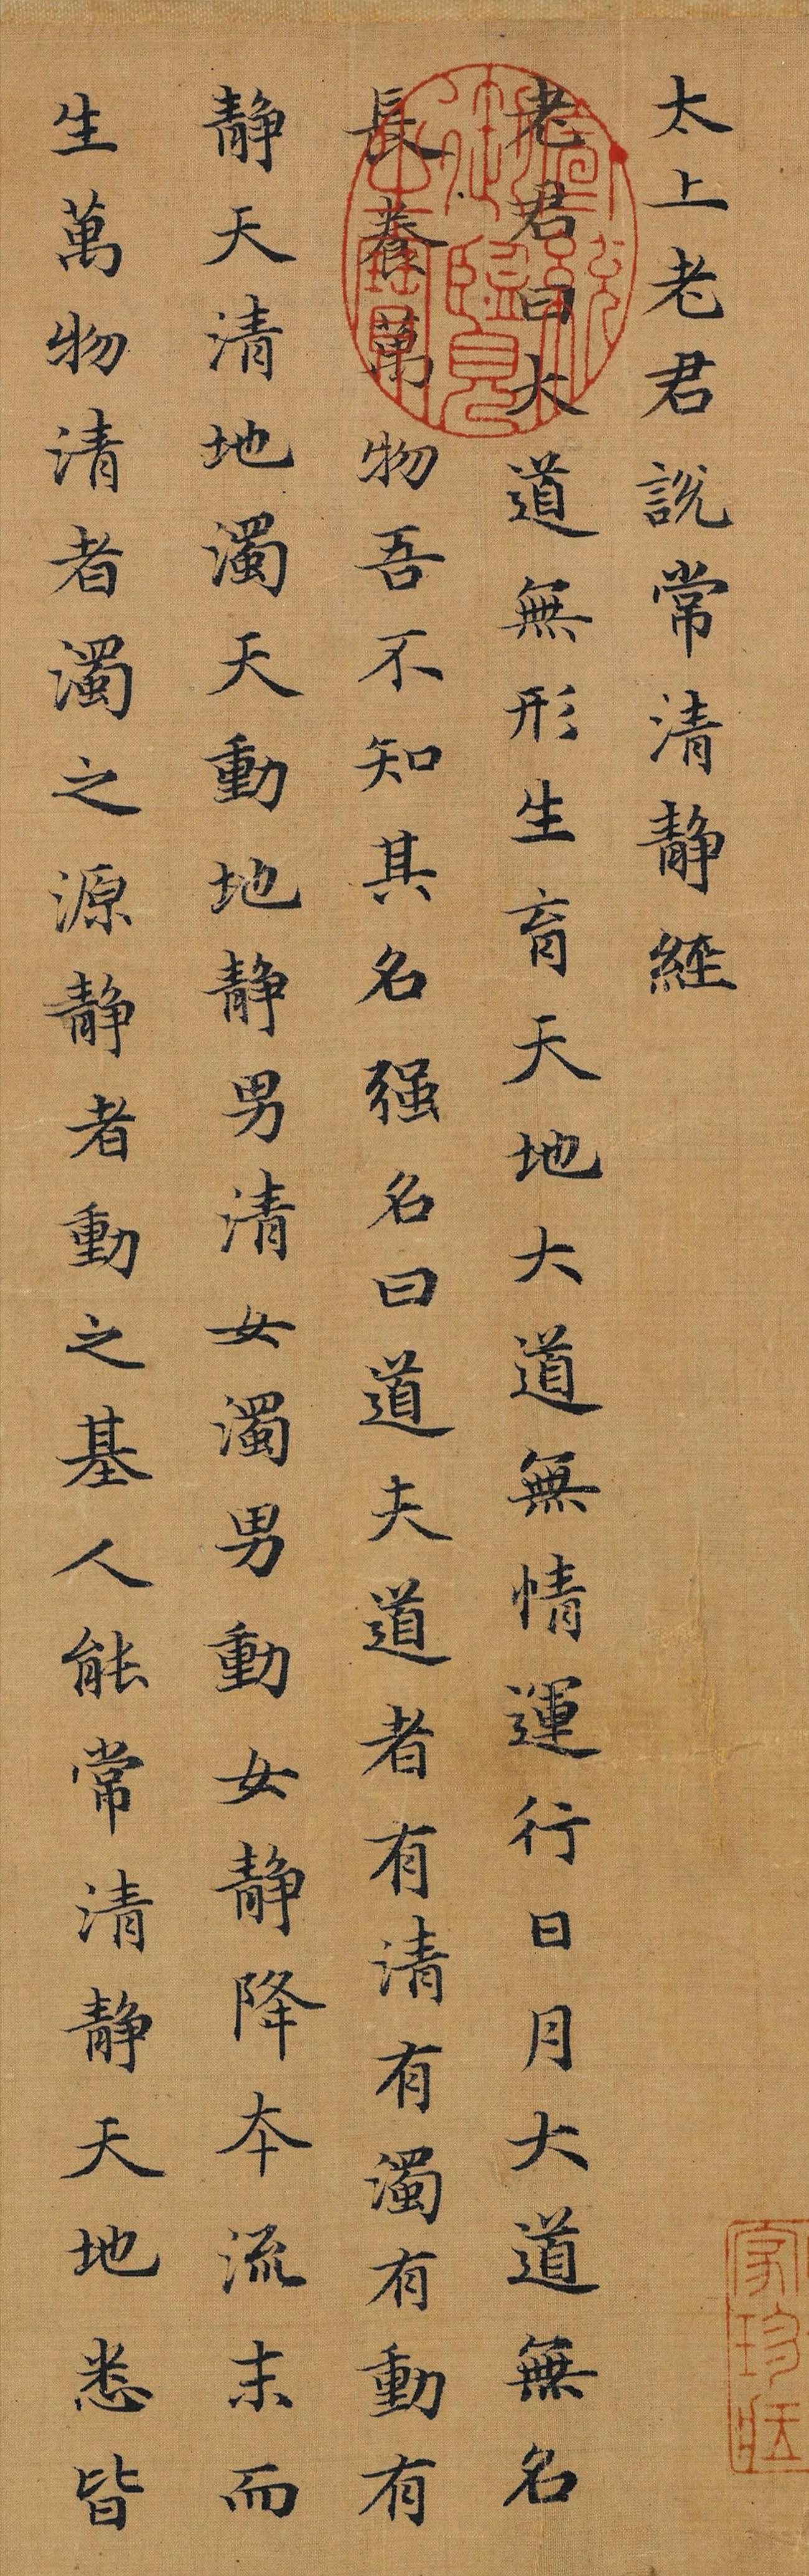 太上老君説常清静經
老君曰大道無形生育天地大道無情運行日月大道無名
長養萬物吾不知其名强名曰道夫道者有清有濁有動有
静天清地濁天動地静男清女濁男動女静降本流末而
生萬物清者濁之源静者動之基人能常清静天地悉皆
宣統御覽之寶